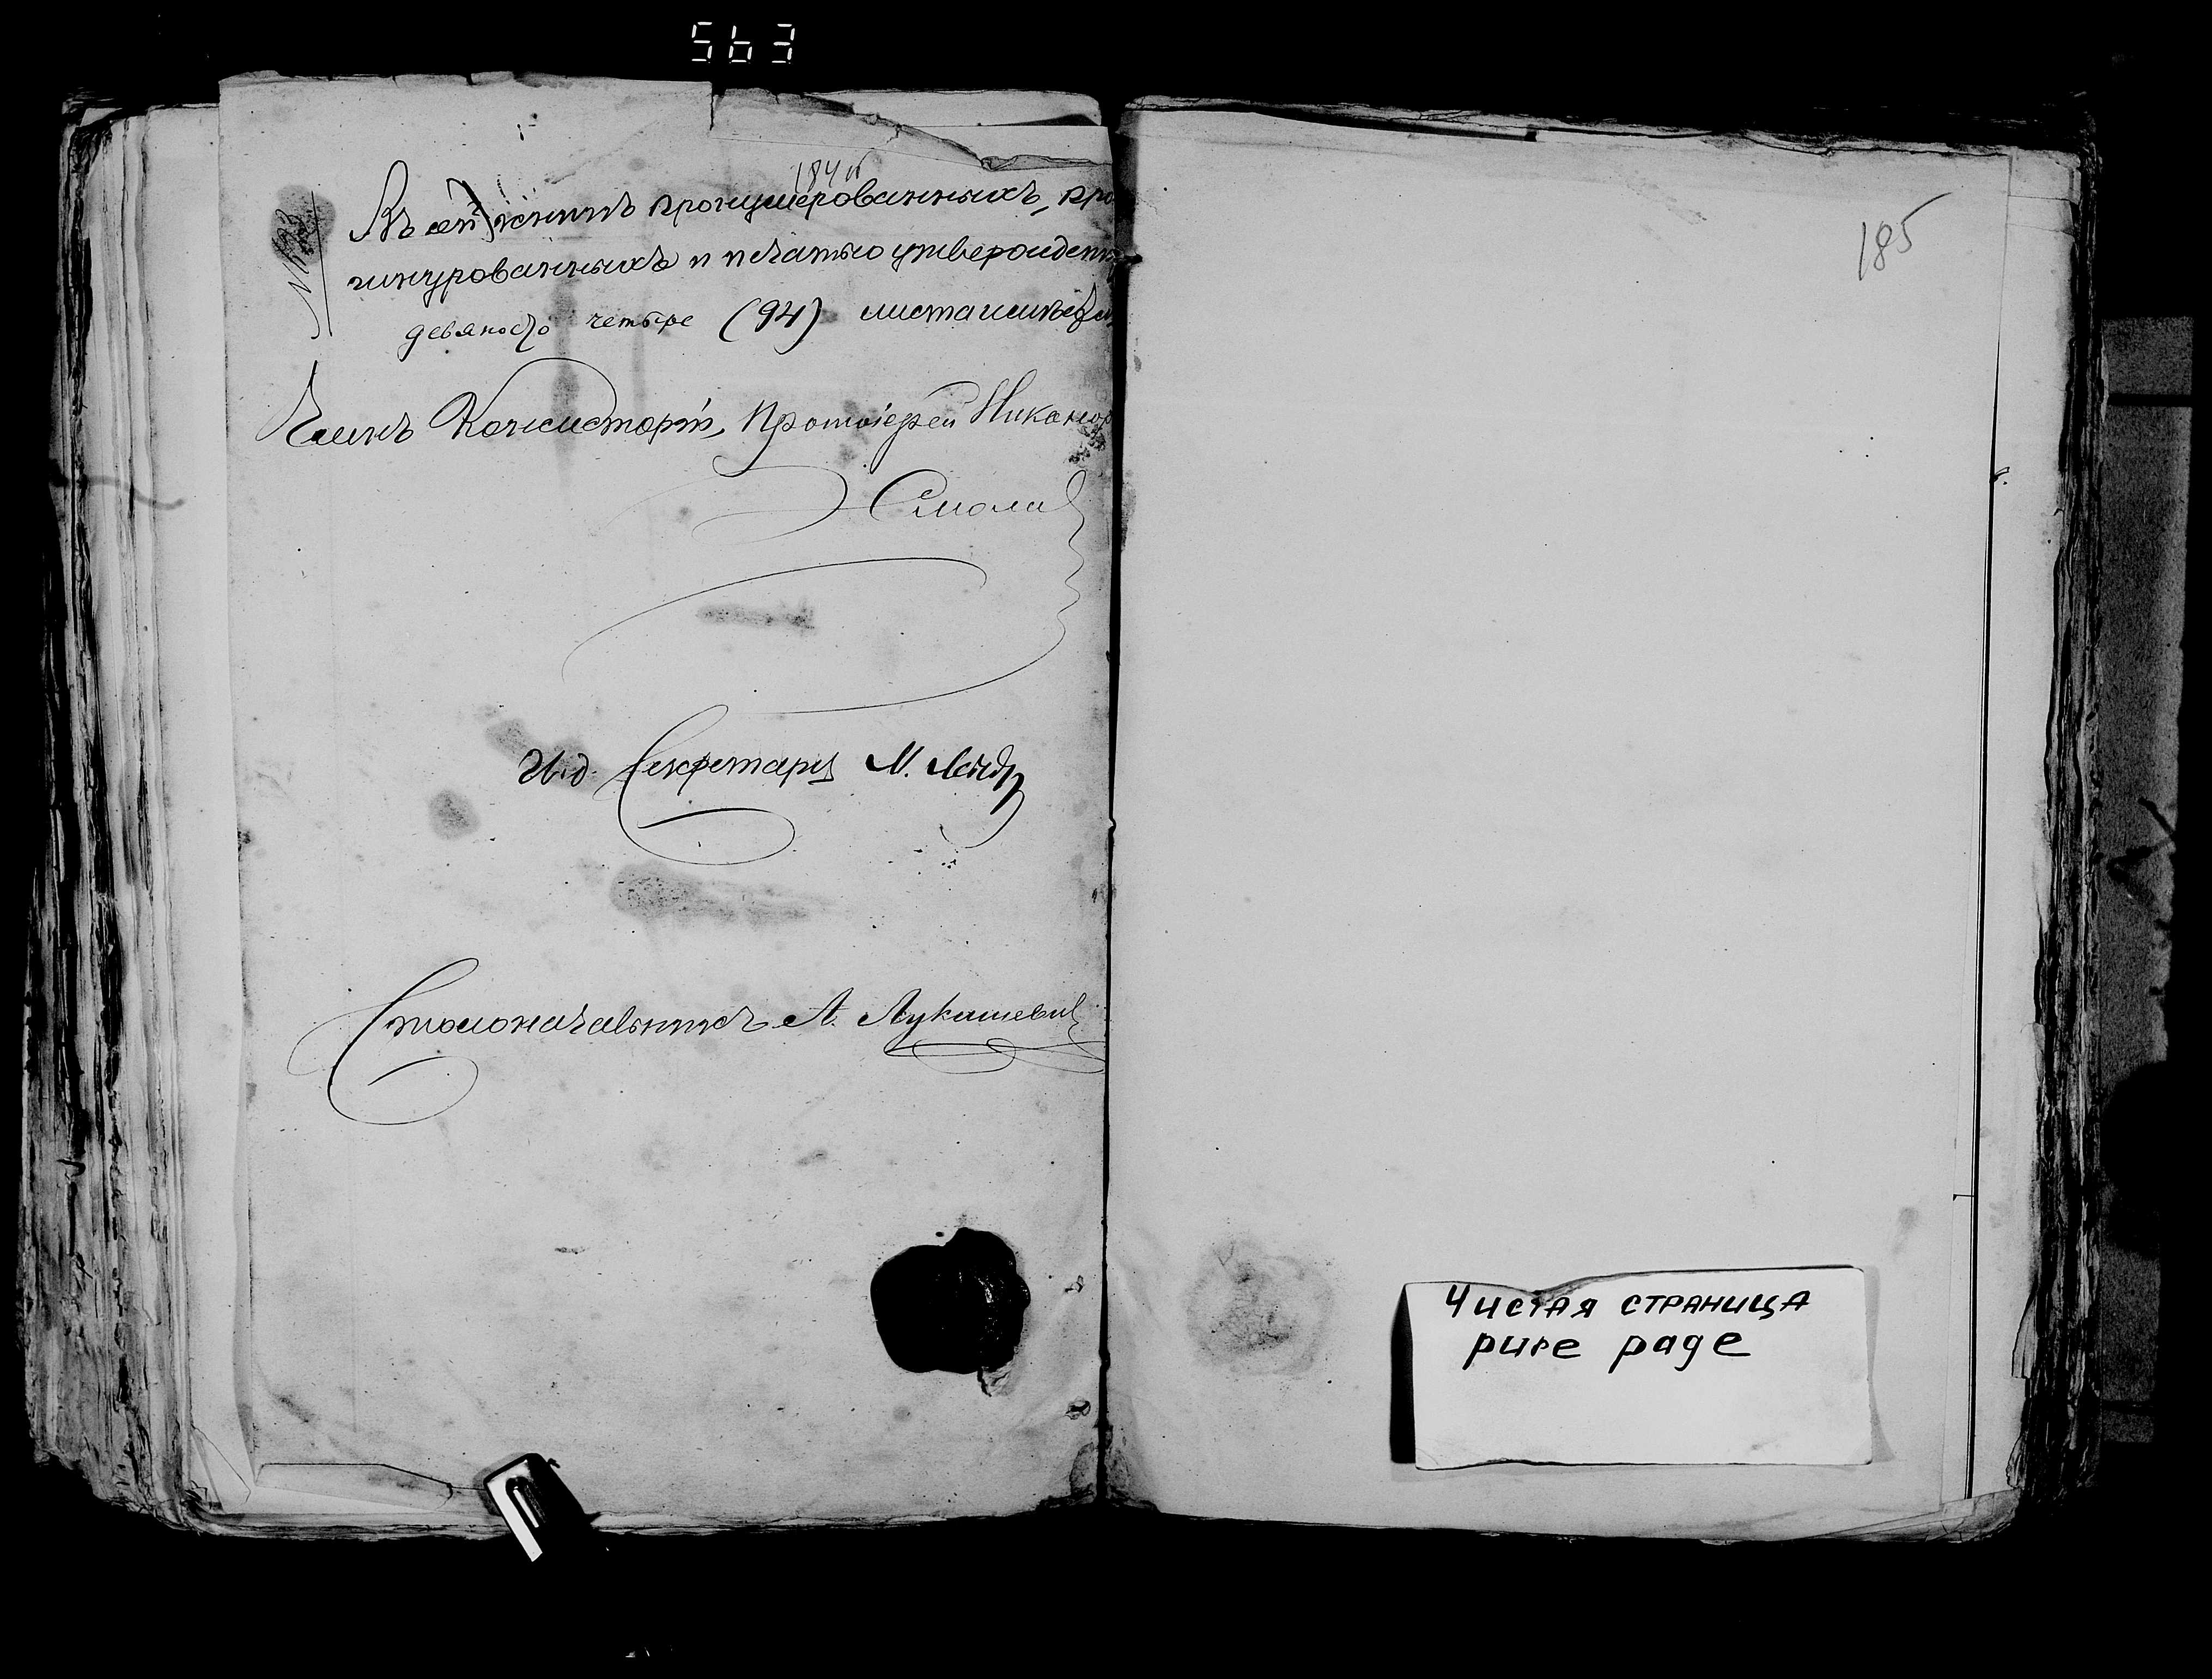 563
184 об
Въ сей книгѣ пронумерованныхъ, про
шнурованныхъ и печатью утвержден
девяносто четыре (94) листа
Членъ Консисторіи, Протоіерей Никанор
Смолич
И. д. Секретаря М.
Столоначальникъ А. Лукашевич
185
Чистая страница
pure page